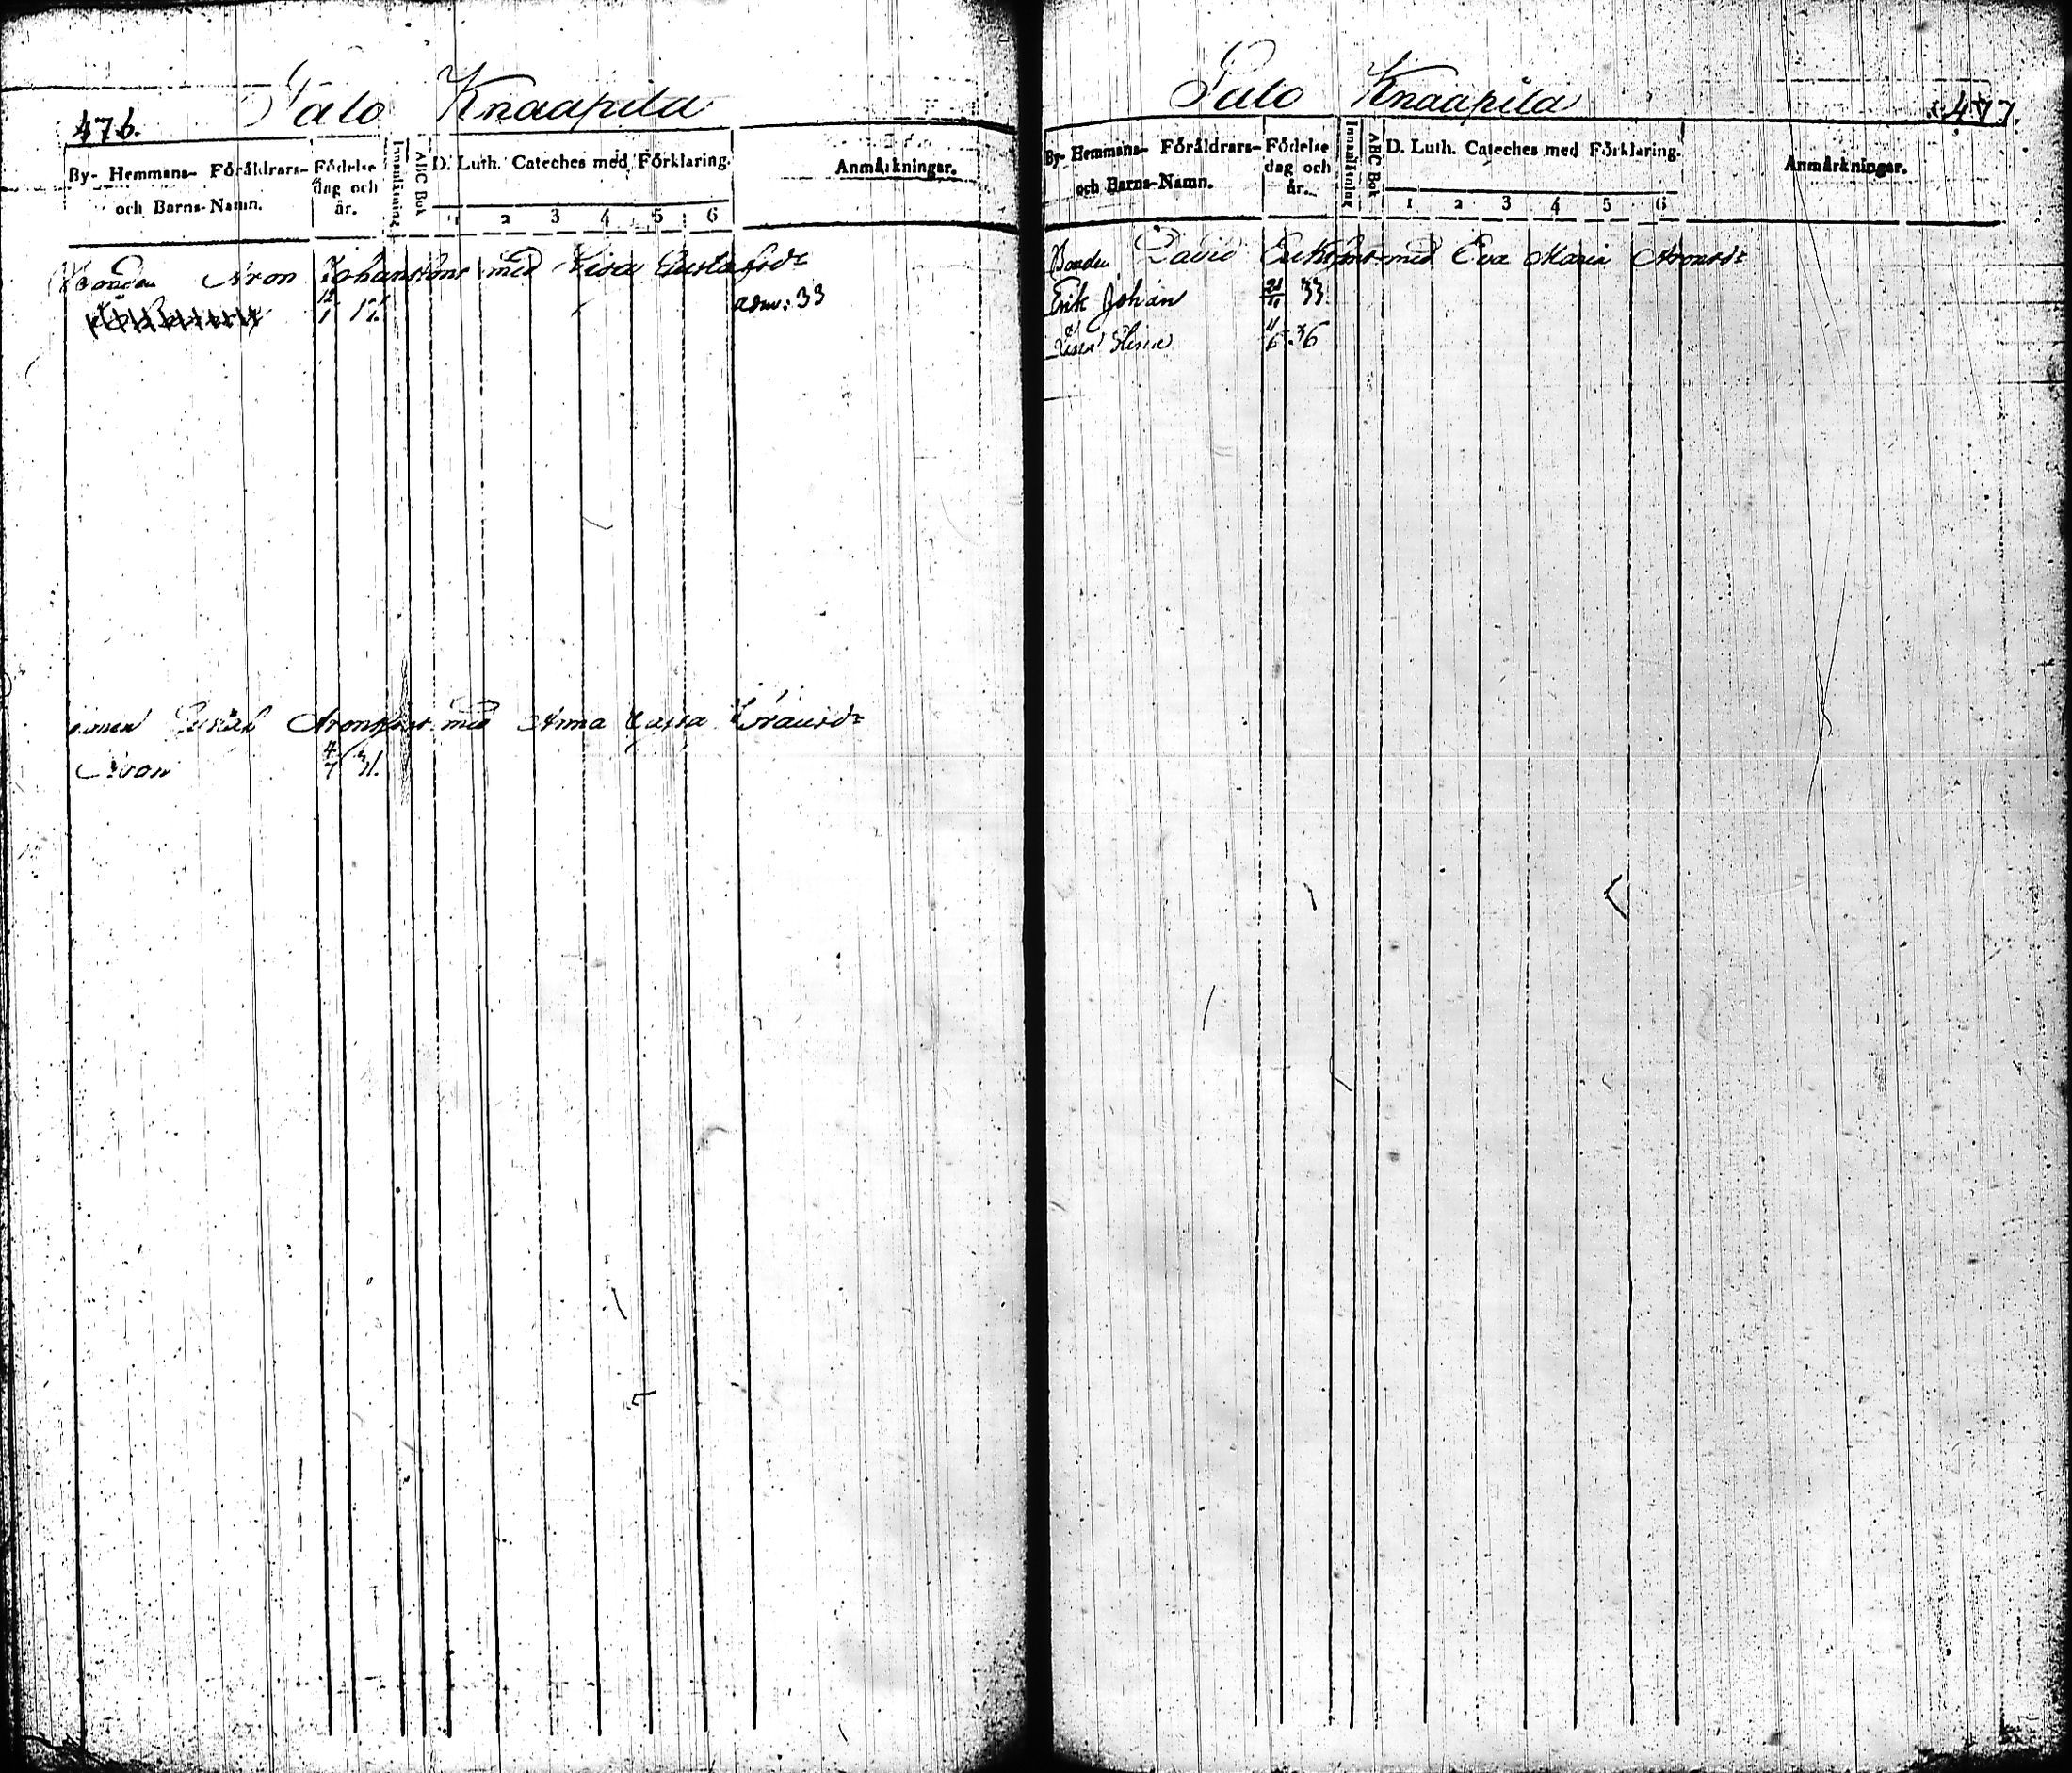 476.
Salo Knaapila
By- Hemmans- Föräldrars-
och Barns-Namn.
Födelse
dag och
år.
Innanläsning
ABC Bok
D. Luth. Cateches med Förklaring.
1 2 3 4 5 6
Anmärkningar.
Bonden Aron Johansson med Lisa Gustafsdr
12/1 adm: 33
Gustaf Aronsson med Anna Caisa
Aron 4/7 31.
477.
Salo Knaapila
By- Hemmans- Föräldrars-
och Barns-Namn.
Födelse
dag och
år.
Innanläsning
ABC Bok
D. Luth. Cateches med Förklaring.
1 2 3 4 5 6
Anmärkningar.
Bonden David Eriksson med Eva Maria Aronsdr
Erik Johan 33
Lisa Stina 11/6 36